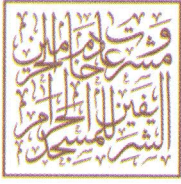 وقف مشروعات خادم الحرمين
الشريفين للمسجد الحرام